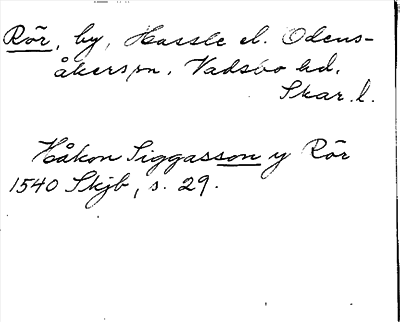 Rör, by, Hassle el. Odens-
åkers sn. Vadsbo hd.
Skar. l.
Håkon Siggasson y Rör
1540 Skjb, s. 29.